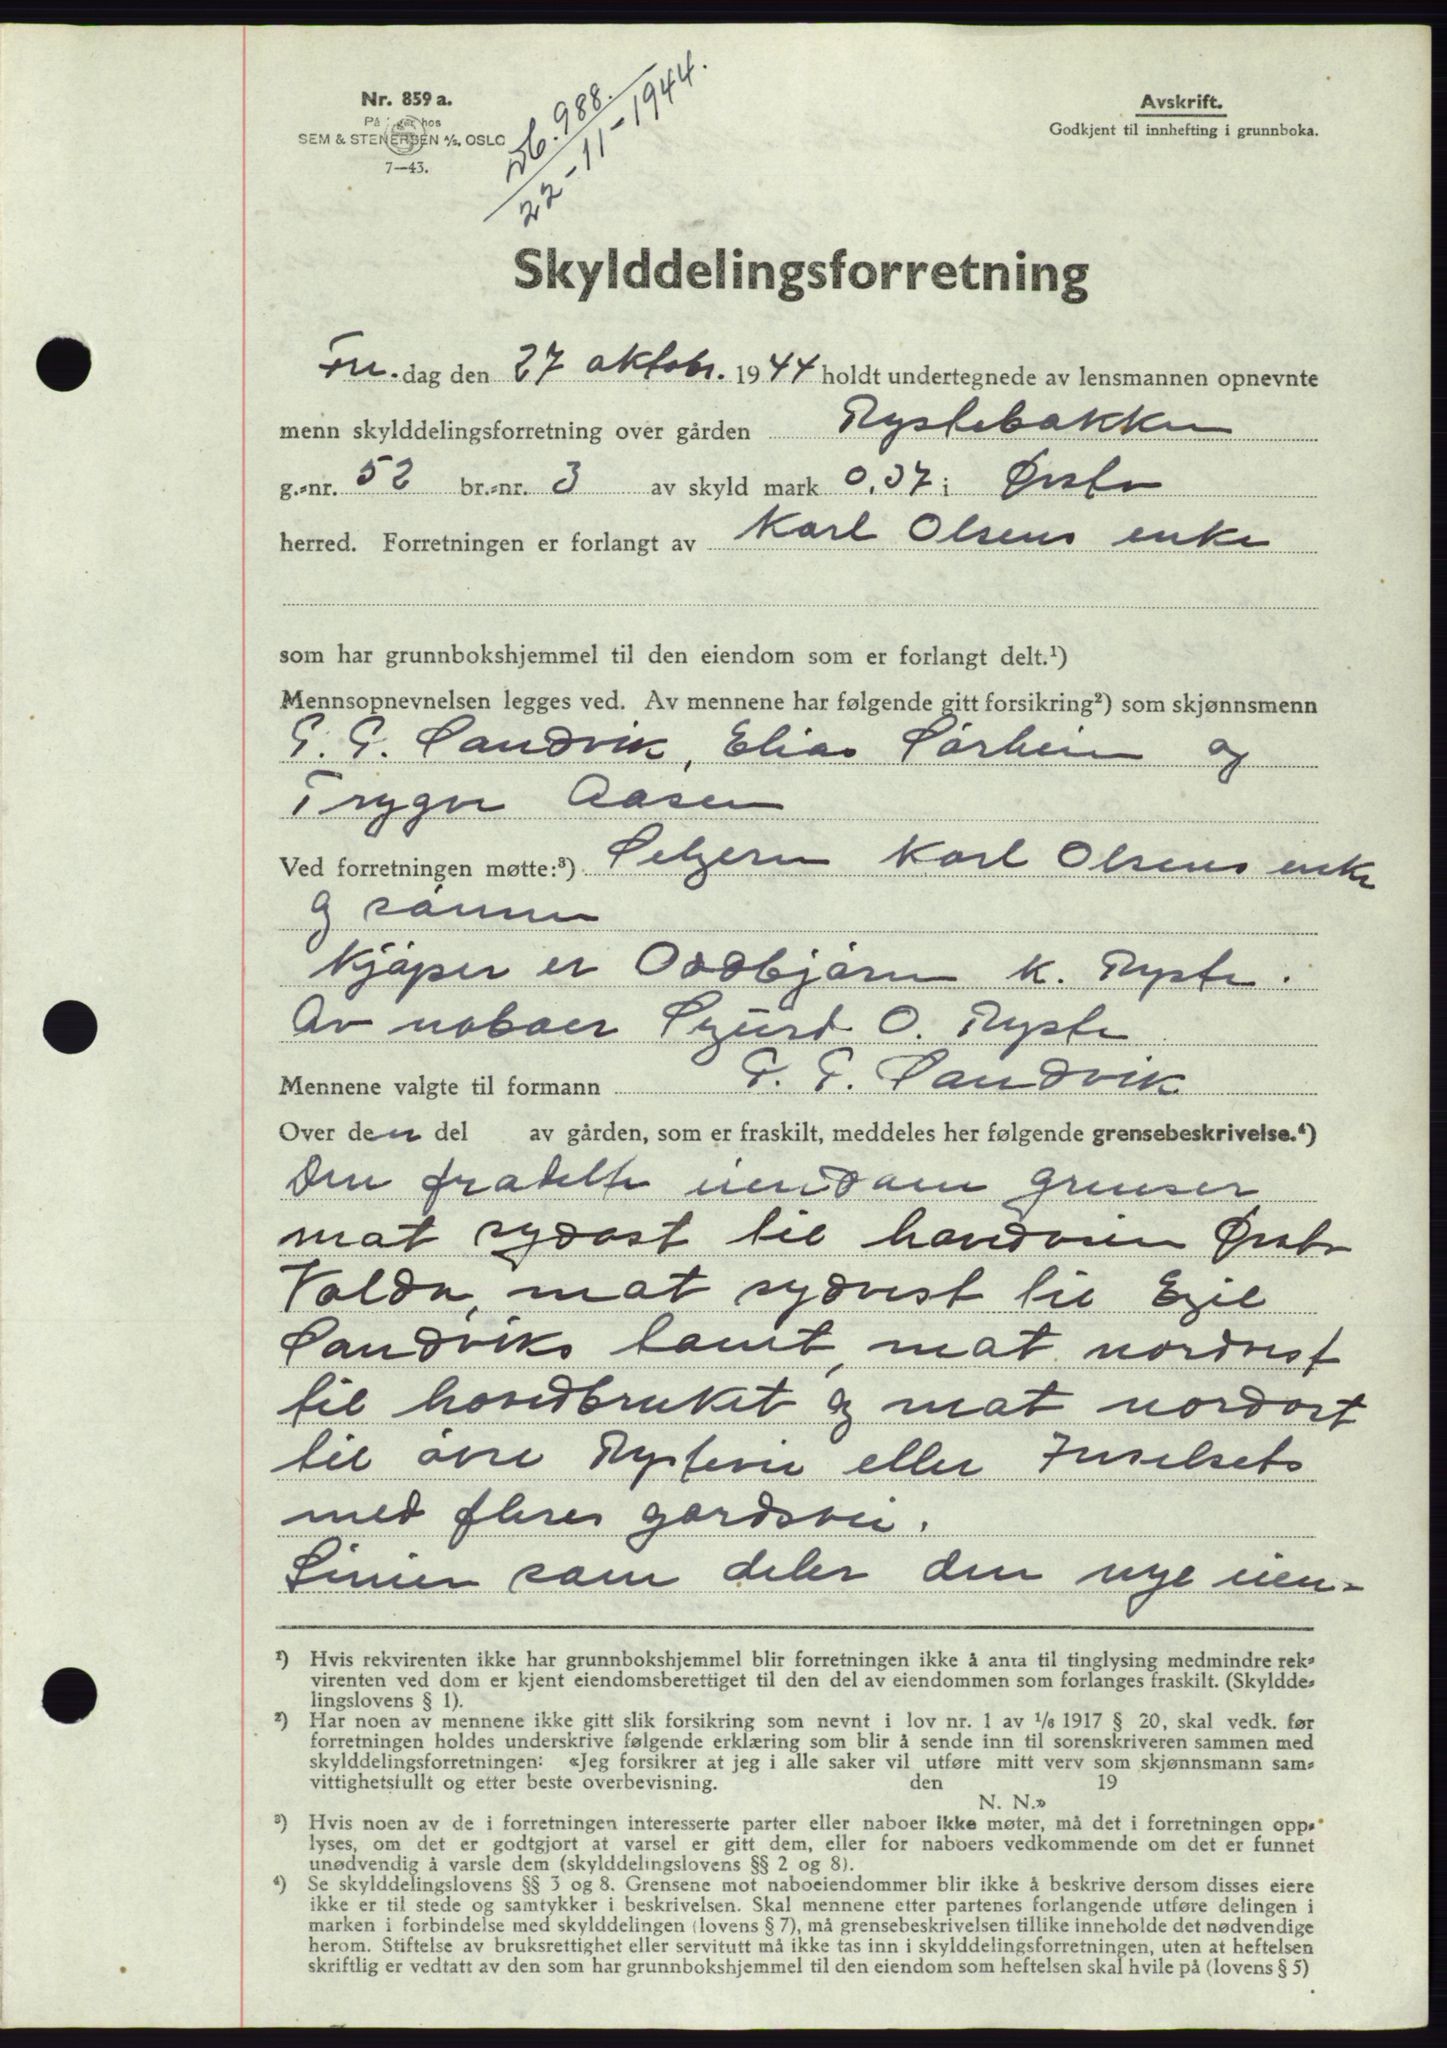 Nr. 859 a.
På lager hos
SEM & STENERSEN A/S, OSLO
7—43.
Db. 988.
22-11-1944.
Avskrift.
Godkjent til innhefting i grunnboka.
Skylddelingsforretning
Fre.dag den 27 oktobr. 1944 holdt undertegnede av lensmannen opnevnte
menn skylddelingsforretning over gården Rystebakken
g.=nr. 52 br.=nr. 3 av skyld mark 0,37 i Ørsta
herred. Forretningen er forlangt av Karl Olsens enke
som har grunnbokshjemmel til den eiendom som er forlangt delt.¹)
Mennsopnevnelsen legges ved. Av mennene har følgende gitt forsikring²) som skjønnsmenn
Sandvik, Elias Sørheim og
Trygve Aasen
Ved forretningen møtte:³) Selgeren Karl Olsens enke
og sønner
Kjøper er Oddbjørn K. Ryste.
Av naboer Sjurd O. Ryste
Mennene valgte til formann Sandvik
Over den del av gården, som er fraskilt, meddeles her følgende grensebeskrivelse.⁴)
Den fradelte eiendom grenser
mot sydost til hovedveien Ørsta
Volda, mot sydvest til Egil
Sandviks tomt, mot nordvest
til hovedbruket og mot nordost
til øvre Rystevei eller Inselsets
med fleres gardsvei.
Linien som deler den nye eien-
¹) Hvis rekvirenten ikke har grunnbokshjemmel blir forretningen ikke å anta til tinglysing medmindre rek=
virenten ved dom er kjent eiendomsberettiget til den del av eiendommen som forlanges fraskilt. (Skyldde=
lingslovens § 1).
²) Har noen av mennene ikke gitt slik forsikring som nevnt i lov nr. 1 av 1/6 1917 § 20, skal vedk. før
forretningen holdes underskrive følgende erklæring som blir å sende inn til sorenskriveren sammen med
skylddelingsforretningen: «Jeg forsikrer at jeg i alle saker vil utføre mitt verv som skjønnsmann sam=
vittighetsfullt og etter beste overbevisning. den 19
N. N.»
³) Hvis noen av de i forretningen interesserte parter eller naboer ikke møter, må det i forretningen opp=
lyses, om det er godtgjort at varsel er gitt dem, eller for naboers vedkommende om det er funnet
unødvendig å varsle dem (skylddelingslovens §§ 2 og 8).
⁴) Se skylddelingslovens §§ 3 og 8. Grensene mot naboeiendommer blir ikke å beskrive dersom disses eiere
ikke er til stede og samtykker i beskrivelsen. Skal mennene etter partenes forlangende utføre delingen i
marken i forbindelse med skylddelingen (lovens § 7), må grensebeskrivelsen tillike inneholde det nødvendige
herom. Stiftelse av bruksrettighet eller servitutt må ikke tas inn i skylddelingsforretningen, uten at heftelsen
skriftlig er vedtatt av den som har grunnbokshjemmel til den eiendom som heftelsen skal hvile på (lovens § 5)